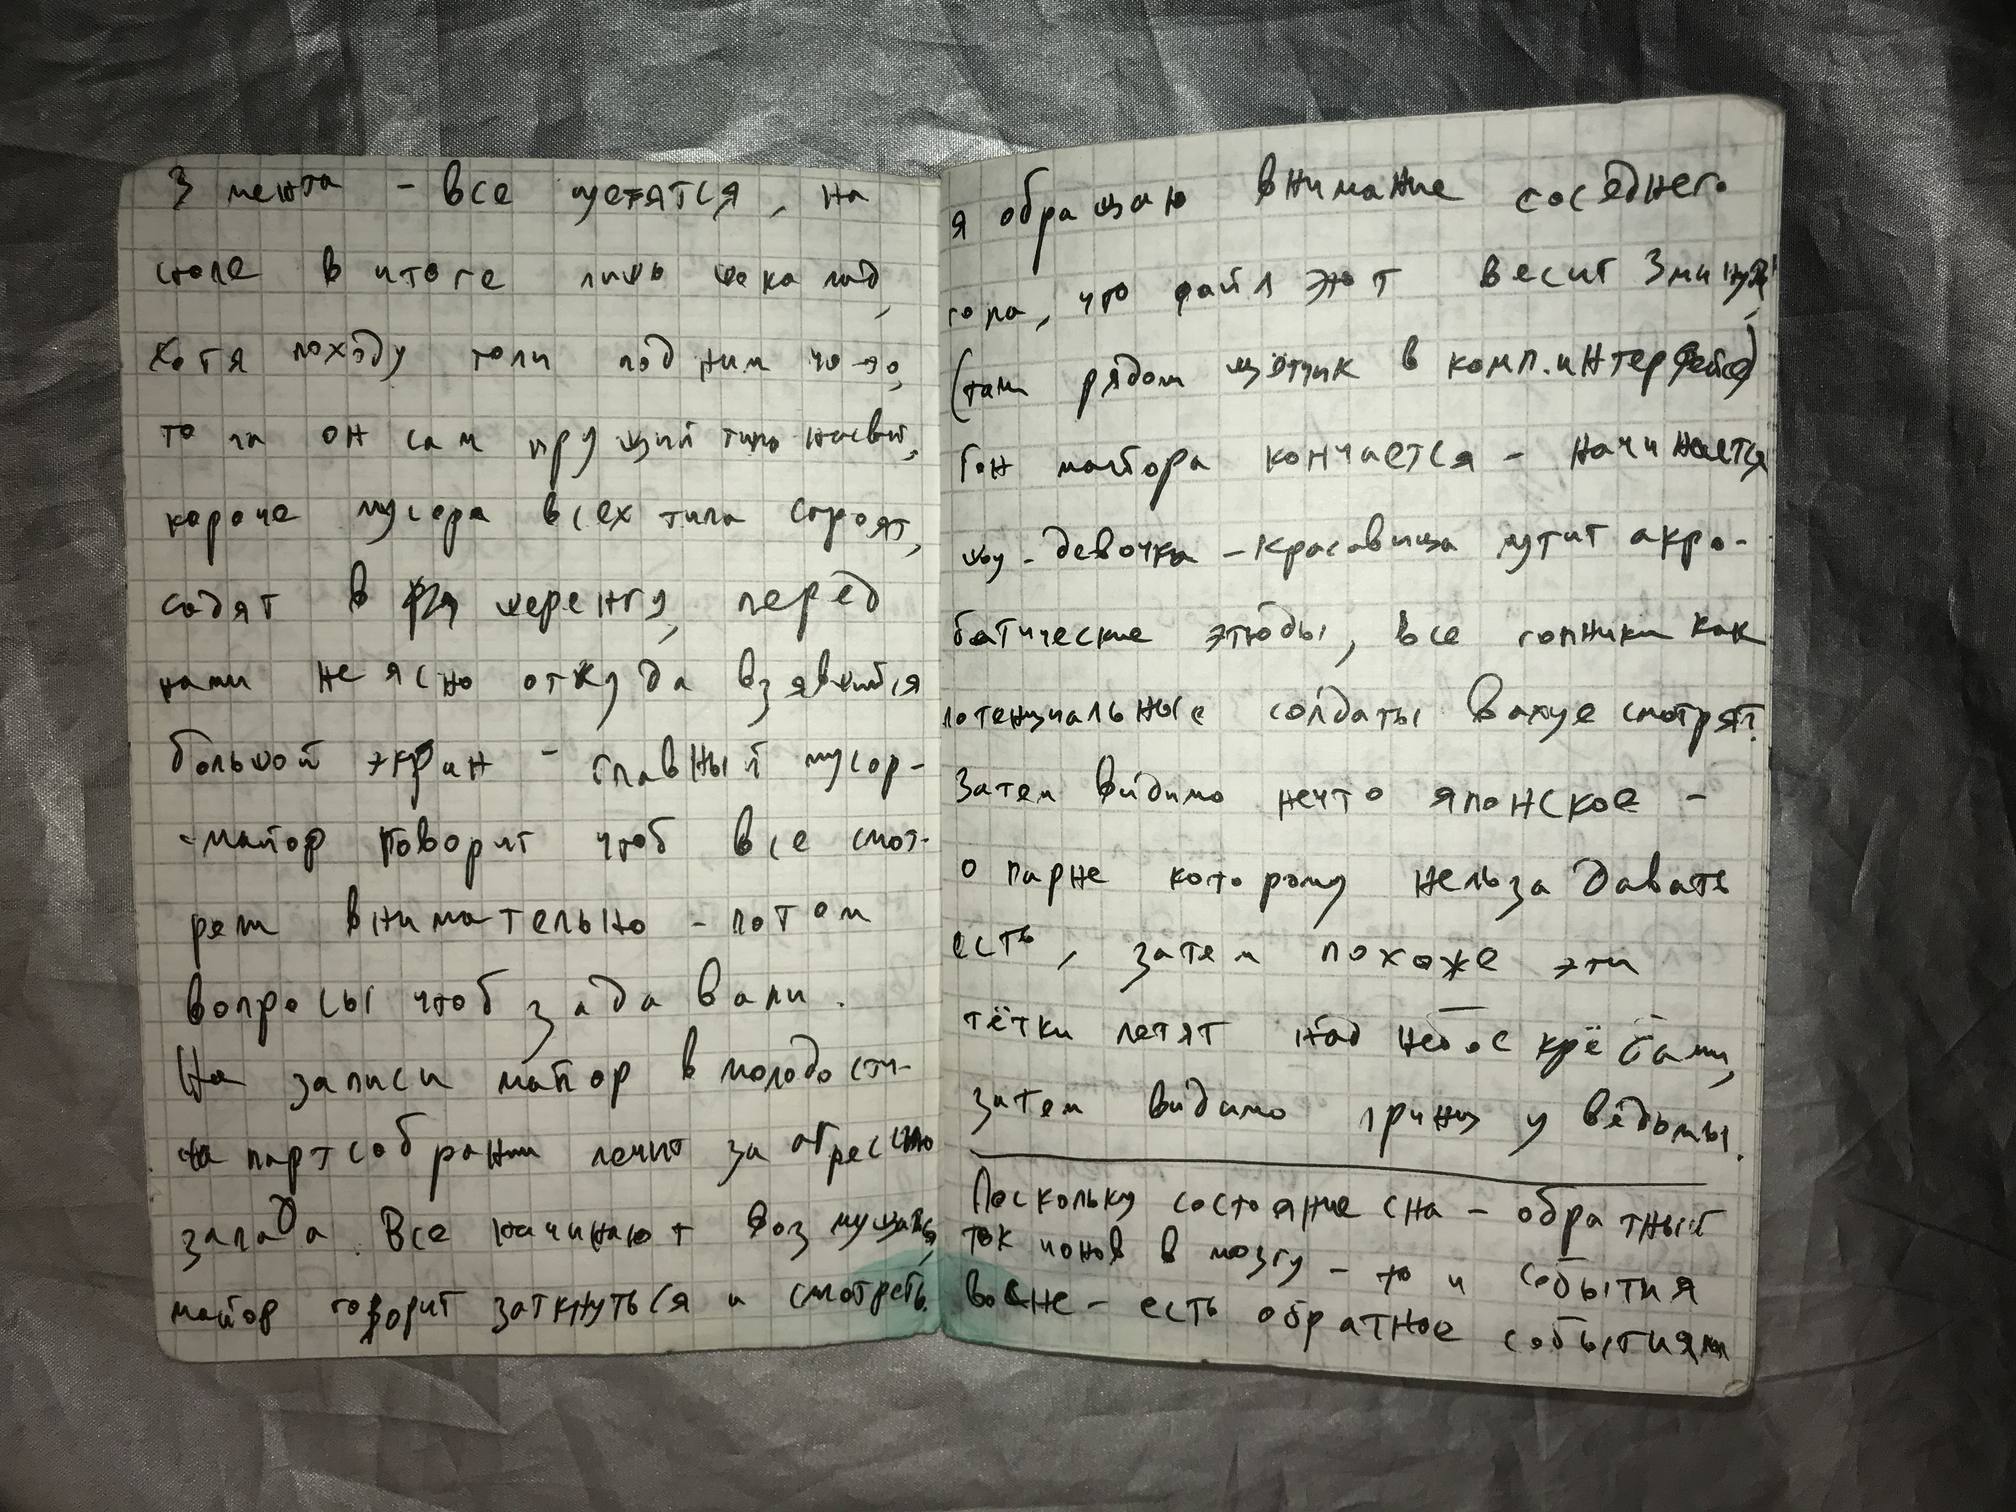 3 мента - все шугятся, на
столе в итоге лишь шоколад,
хотя походу толи под ним че-то,
то ли он сам прущий типа насвай,
короче мусора всех типа строят,
садят в шеренгу, перед
нами не ясно откуда взявшийся
большой экран - главный мусор-
-майор говорит чтоб все смот-
рели внимательно - потом
вопросы чтоб задавали.
На записи майор в молодости-
на партсобрании лечит за агрессию
запада. Все начинают возмущаться,
майор говорит заткнуться и смотреть.
я обращаю внимание соседнего
гопа, что файл этот весит 3 минуты,
(там рядом щётчик в комп.интерфейсе)
Гон майора кончается - начинается
шоу - девочка - красавица мутит акро-
батические этюды, все гопники как
потенциальные солдаты в ахуе смотрят.
Затем видимо нечто японское -
о парне которому нельза давать
есть, затем похоже эти
тётки летят над небоскрёбами,
затем видимо принц у ведьмы.
Поскольку состояние сна - обратный
ток ионов в мозгу - то и события
во сне - есть обратное событиям